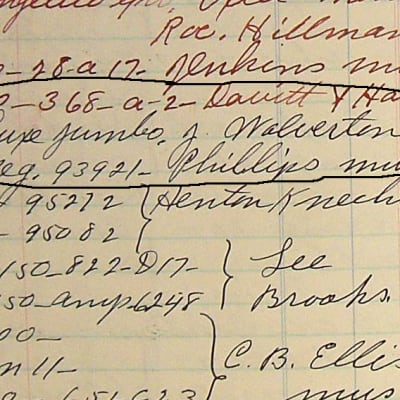 Roc. Hillman
-28-a 17- Jenkins mu
-368-a-2- Davitt & Ha
uxe Jumbo, J. Wolverton
eg. 93921- Phillips mu
95272 Henton Knech
- 95082
150-822-D17- Lee
50-amp6248 Brooks.
00-
n 11- C. B. Ellis
mus